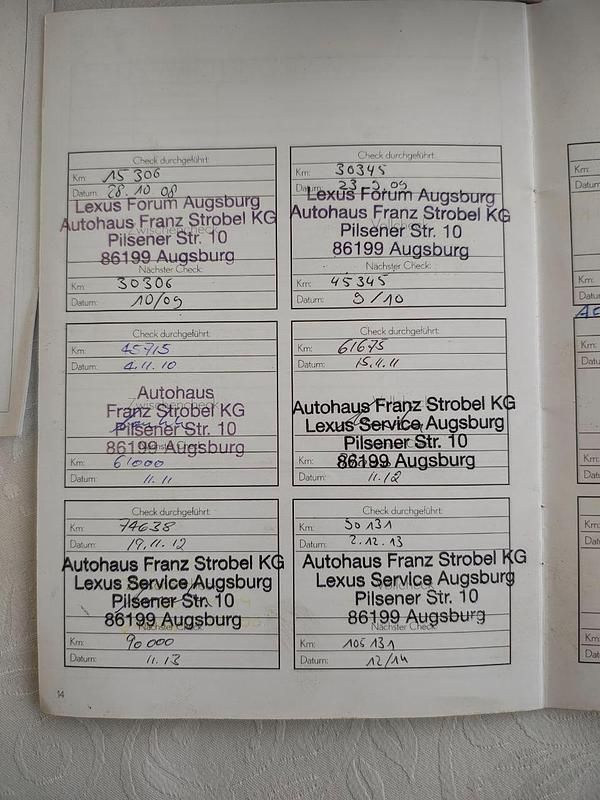 Check durchgeführt:
Km: 15 306
Datum: 28.10 08
Zwischencheck
Lexus Forum Augsburg
Autohaus Franz Strobel KG
Pilsener Str. 10
86199 Augsburg
Nächster Check:
Km: 30306
Datum: 10/09
Check durchgeführt:
Km: 30345
Datum: 23 9.09
Lexus Forum Augsburg
Autohaus Franz Strobel KG
Pilsener Str. 10
86199 Augsburg
Nächster Check:
Km: 45345
Datum: 9/10
Check durchgeführt:
Km: 45715
Datum: 4.11.10
Zwischencheck
Autohaus
Franz Strobel KG
Pilsener Str. 10
86199 Augsburg
Km: 61000
Datum: 11.11
Check durchgeführt:
Km: 61675
Datum: 15.11.11
Autohaus Franz Strobel KG
Lexus Service Augsburg
Pilsener Str. 10
86199 Augsburg
Km:
Datum: 11.12
Check durchgeführt:
Km: 74638
Datum: 19.11.12
Autohaus Franz Strobel KG
Lexus Service Augsburg
Pilsener Str. 10
86199 Augsburg
Nächster Check:
Km: 90 000
Datum: 11.13
Check durchgeführt:
Km: 90 131
Datum: 2.12.13
Autohaus Franz Strobel KG
Lexus Service Augsburg
Pilsener Str. 10
86199 Augsburg
Nächster Check:
Km: 105 131
Datum: 12/14
14